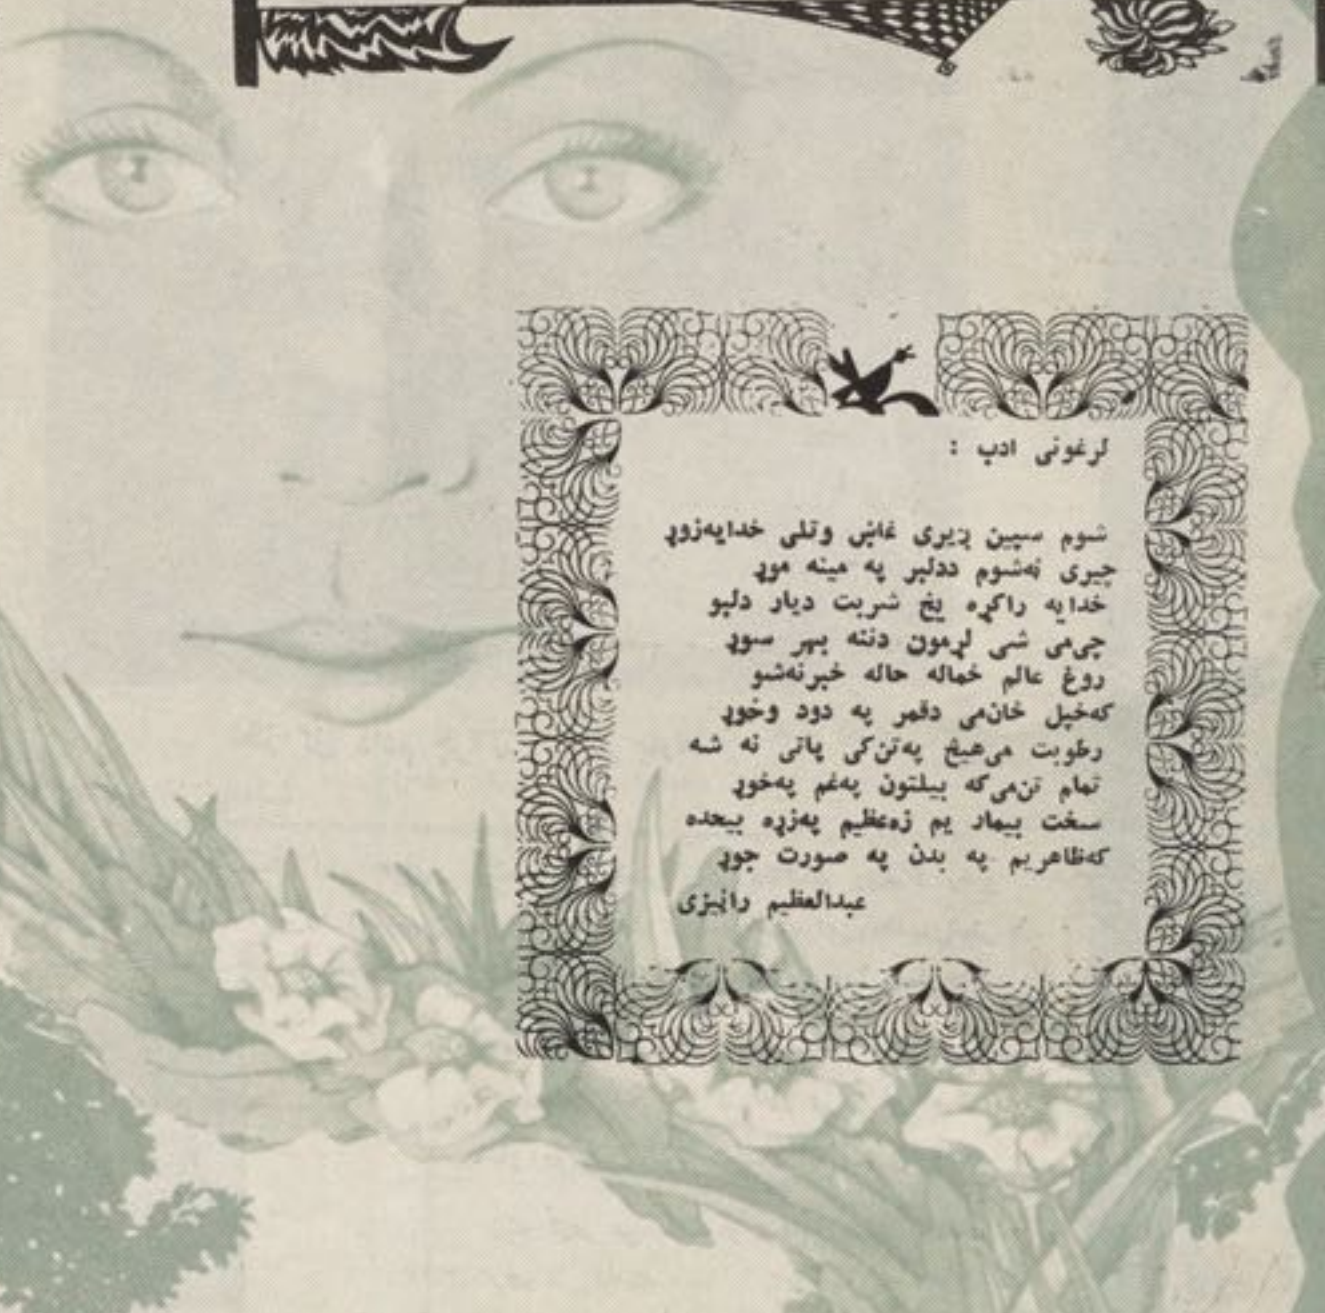 لرغونی ادب :
شوم سپین ږیری غاښ وتلی خدایه‌زوړ
چیری نه‌شوم ددلبر په مینه موړ
خدایه راکړه یخ شربت دیار دلبو
چی‌می شی لړمون دننه بهر سوړ
روغ عالم خماله حاله خبر نه‌شو
که‌خپل خان‌می دقمر په دود وخوړ
رطوبت می‌هیڅ په‌تن‌کی پاتی نه شه
تمام تن‌می‌که بیلتون په‌غم په‌خوړ
سخت بیمار یم زه‌عظیم په‌زړه بیحده
که‌ظاهر یم په بدن په صورت جوړ
عبدالعظیم راڼیزی